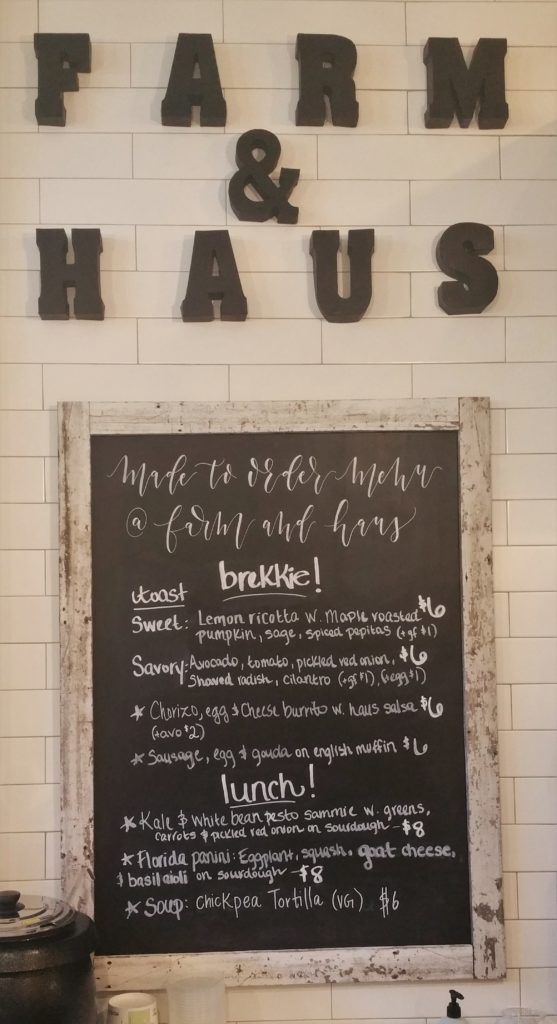 FARM
&
HAUS
made to order menu
@ farm and haus
brekkie!
toast
Sweet: Lemon ricotta w. maple roasted $6
pumpkin, sage, spiced pepitas (+gf $1)
Savory: Avocado, tomato, pickled red onion, $6
Shaved radish, cilantro (+gf $1), (+egg $1)
* Chorizo, egg & cheese burrito w. haus salsa $6
(+avo $2)
* Sausage, egg & gouda on english muffin $6
lunch!
* Kale & white bean pesto sammie w. greens,
carrots & pickled red onion on sourdough - $8
* Florida panini: Eggplant, squash, goat cheese,
& basil aioli on sourdough - $8
* Soup: Chickpea Tortilla (VG) $6